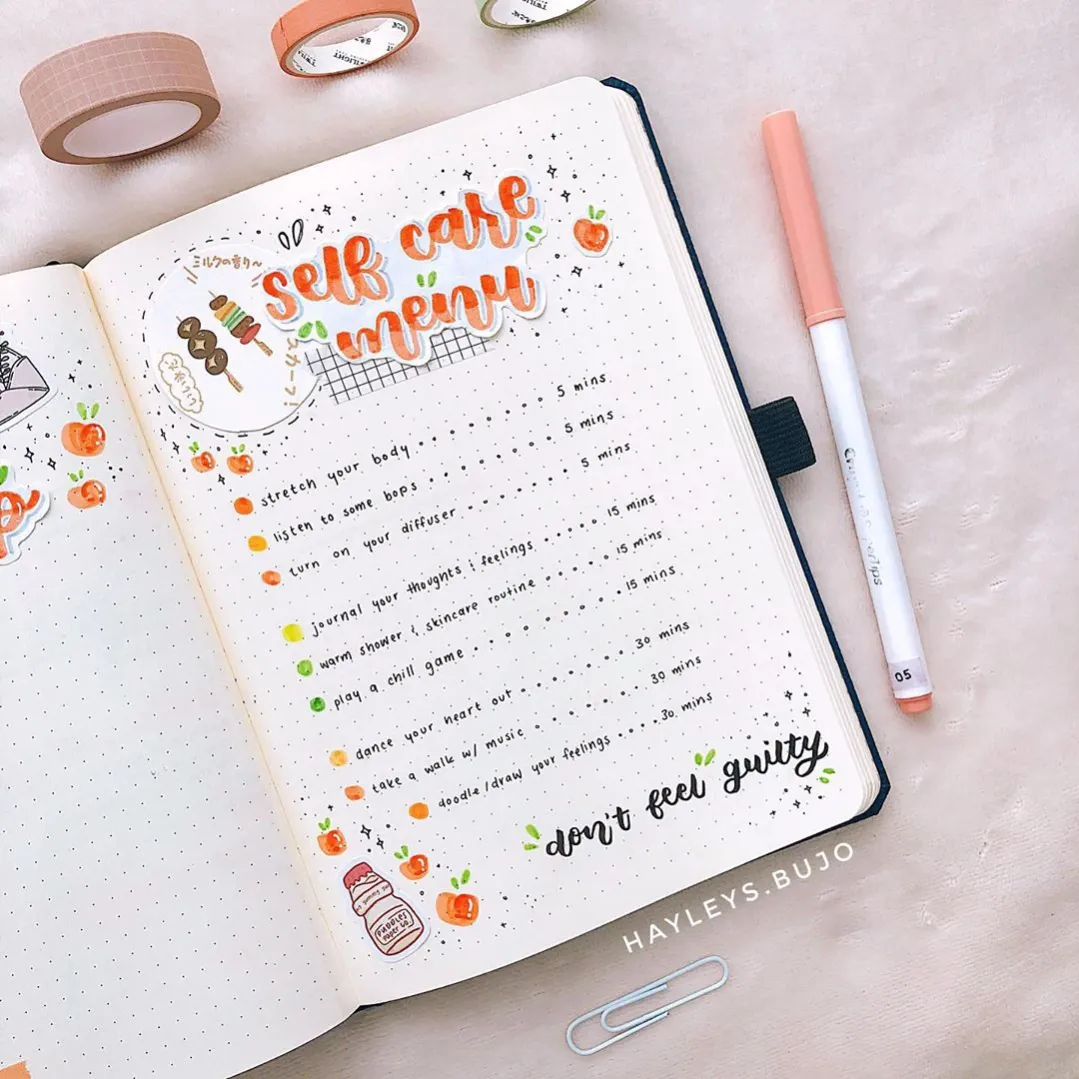 self care
menu
ミルクの香り〜
スカーフ!
stretch your body 5 mins
listen to some bops 5 mins
turn on your diffuser 5 mins
journal your thoughts & feelings 15 mins
warm shower & skincare routine 15 mins
play a chill game 15 mins
dance your heart out 30 mins
take a walk w/ music 30 mins
doodle/draw your feelings 30 mins
don't feel guilty
PUDDLES
PAPER CO.
HAYLEYS.BUJO
05